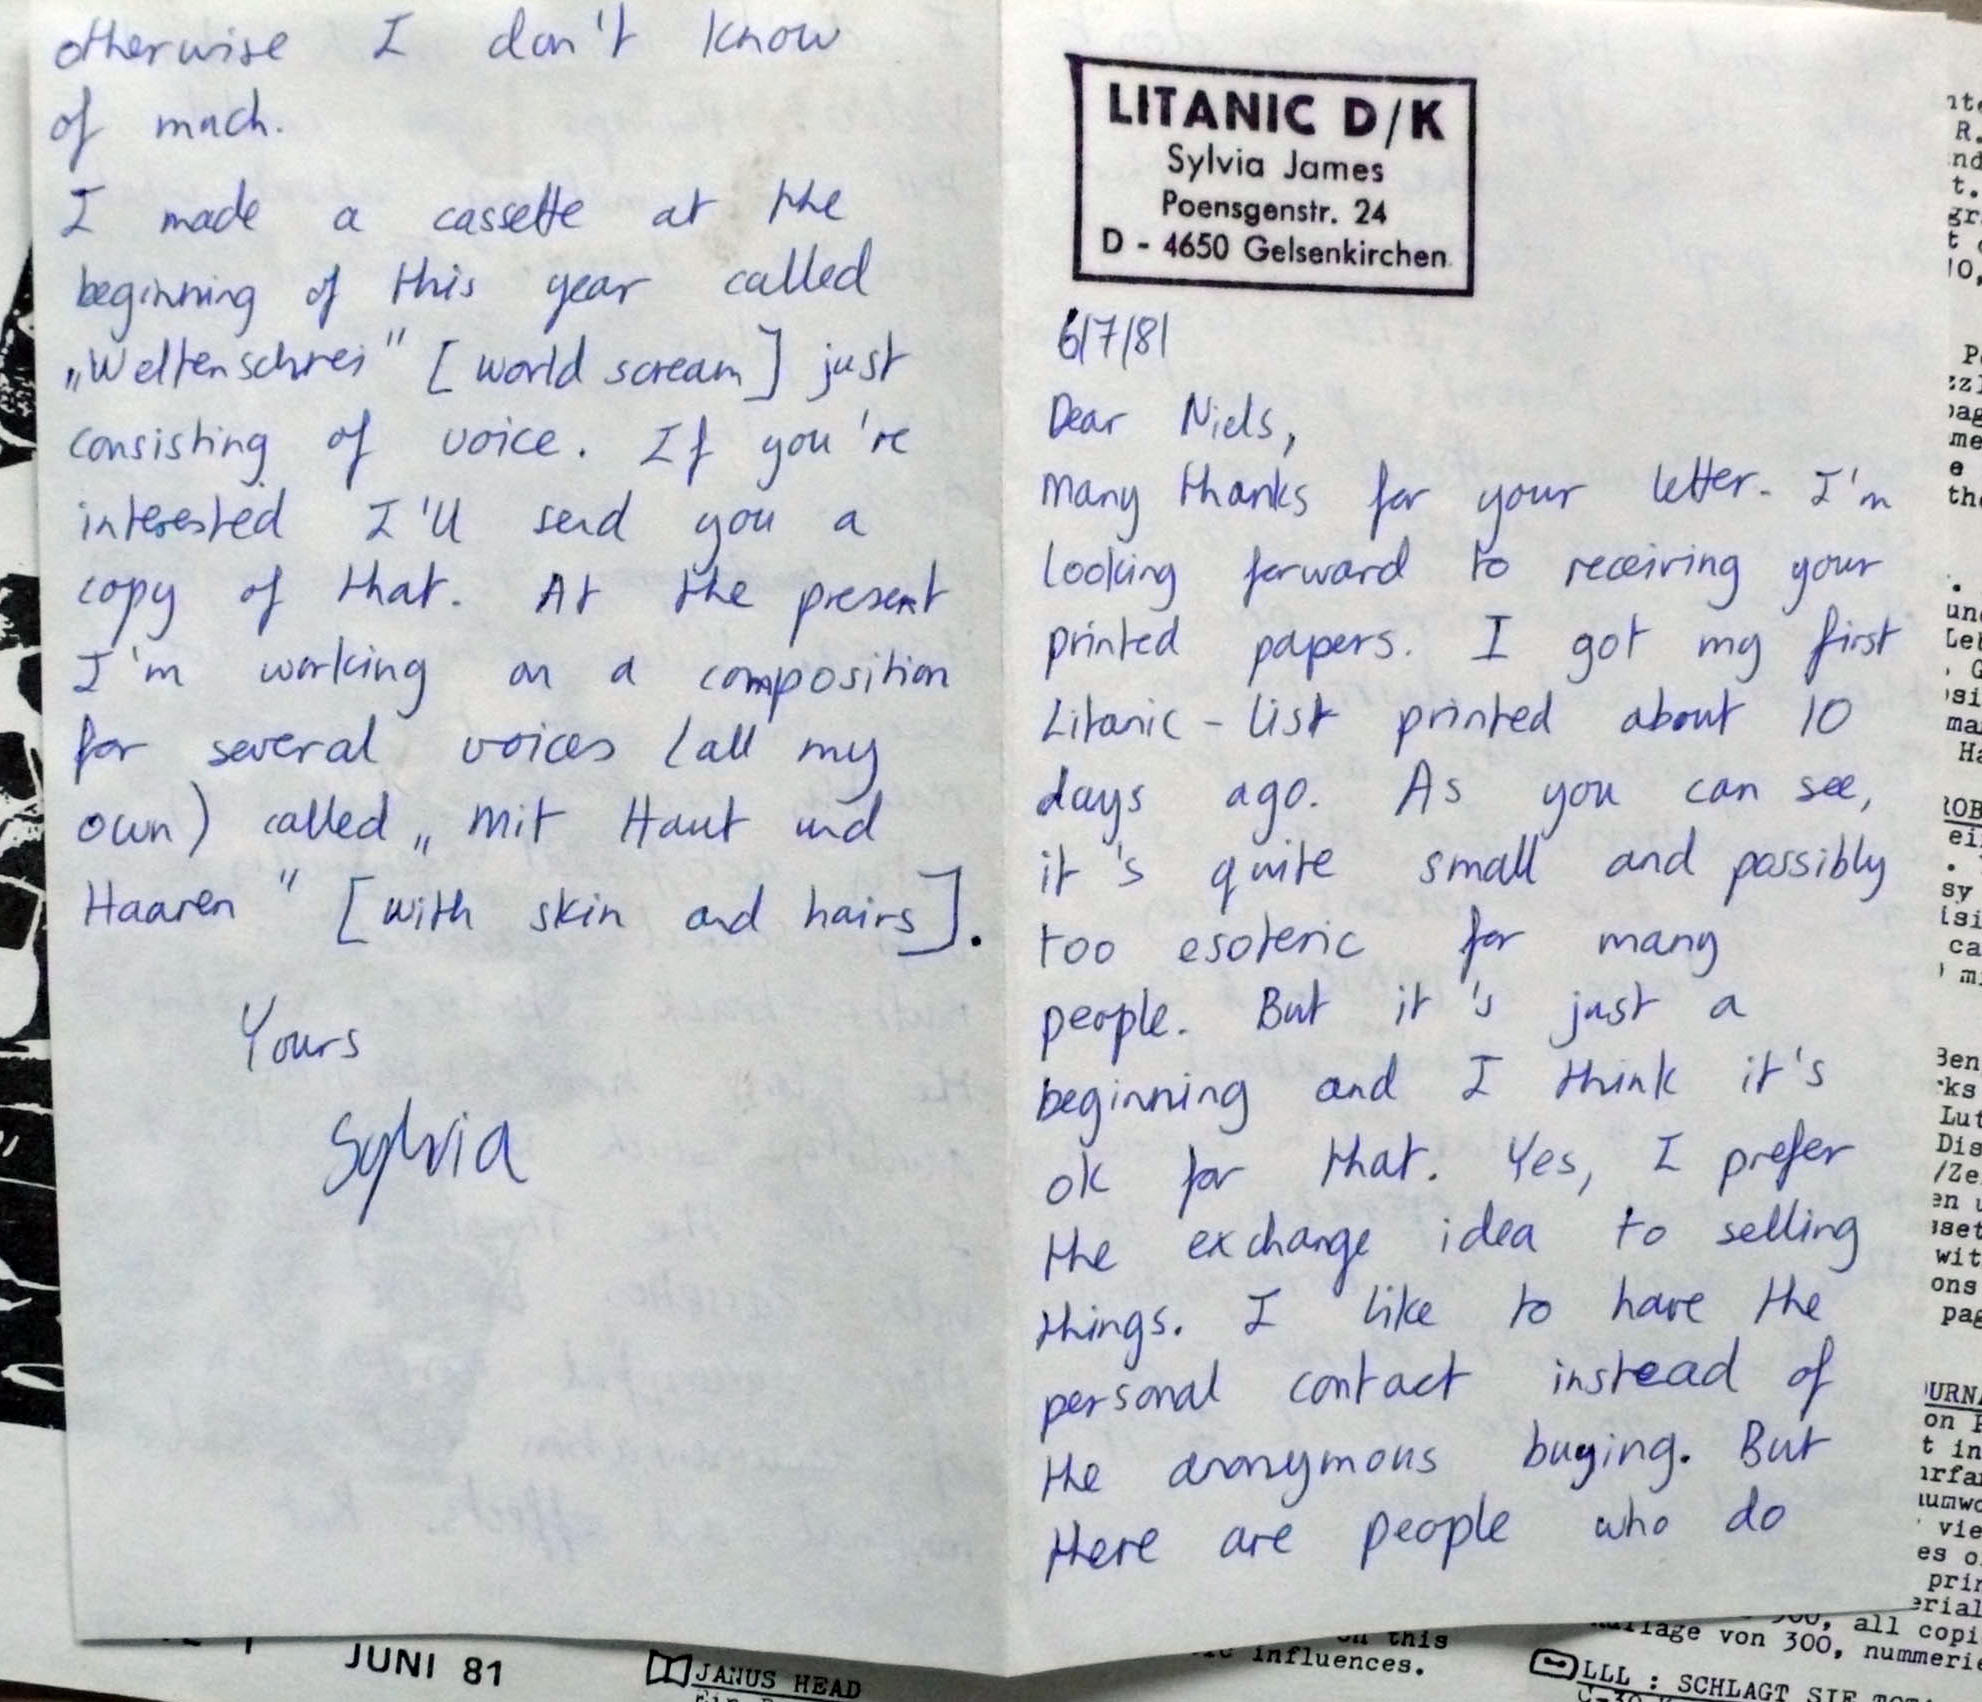 LITANIC D/K
Sylvia James
Poensgenstr. 24
D - 4650 Gelsenkirchen
6/7/81
Dear Niels,
many thanks for your letter. I'm
looking forward to receiving your
printed papers. I got my first
Litanic - list printed about 10
days ago. As you can see,
it's quite small and possibly
too esoteric for many
people. But it's just a
beginning and I think it's
ok for that. Yes, I prefer
the exchange idea to selling
things. I like to have the
personal contact instead of
the anonymous buying. But
there are people who do
otherwise I don't know
of mach.
I made a cassette at the
beginning of this year called
„Weltenschrei" [world scream] just
consisting of voice. If you're
interested I'll send you a
copy of that. At the present
I'm working on a composition
for several voices (all my
own) called „mit Haut und
Haaren" [with skin and hairs].
Yours
Sylvia
JUNI 81
JANUS HEAD
this
influences.
300, all copi
von 300, nummerie
LLL : SCHLAGT SIE